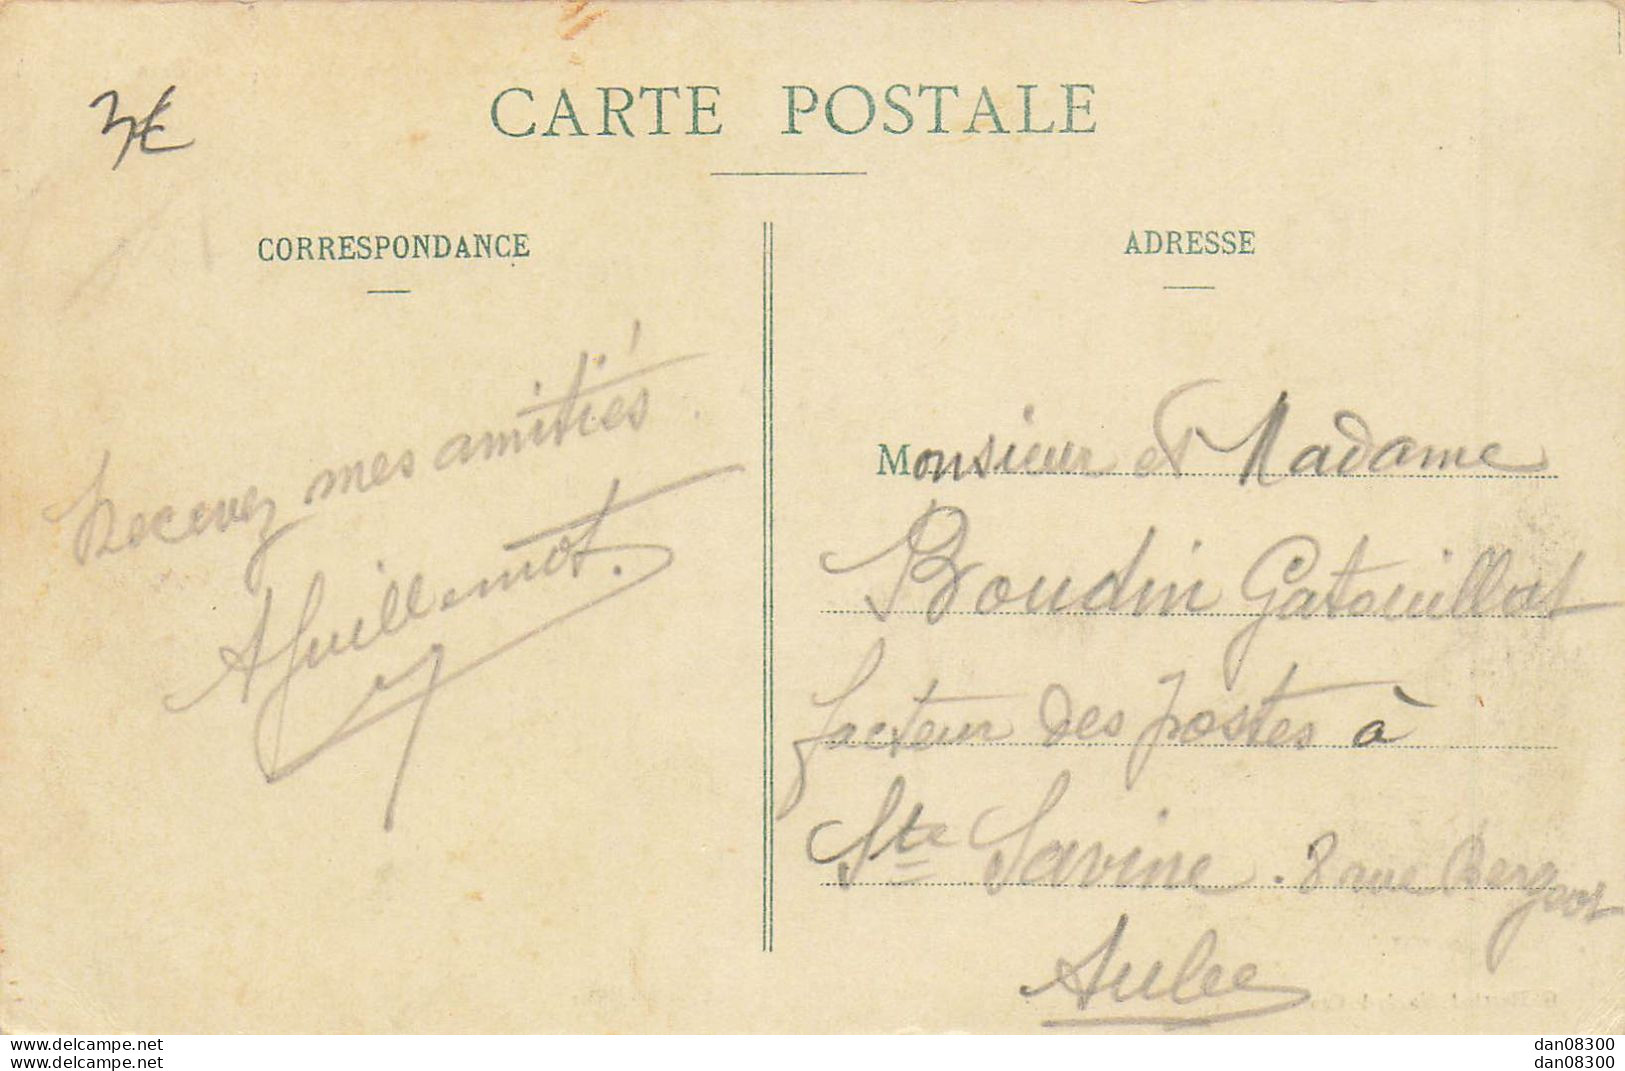 3€
CARTE POSTALE
CORRESPONDANCE
Recevez mes amitiés.
AGuillemot.
ADRESSE
Monsieur et Madame
Boudin Gatouillat
facteur des postes à
Ste Savine. 8 rue
Aube
www.delcampe.net
www.delcampe.net
dan08300
dan08300